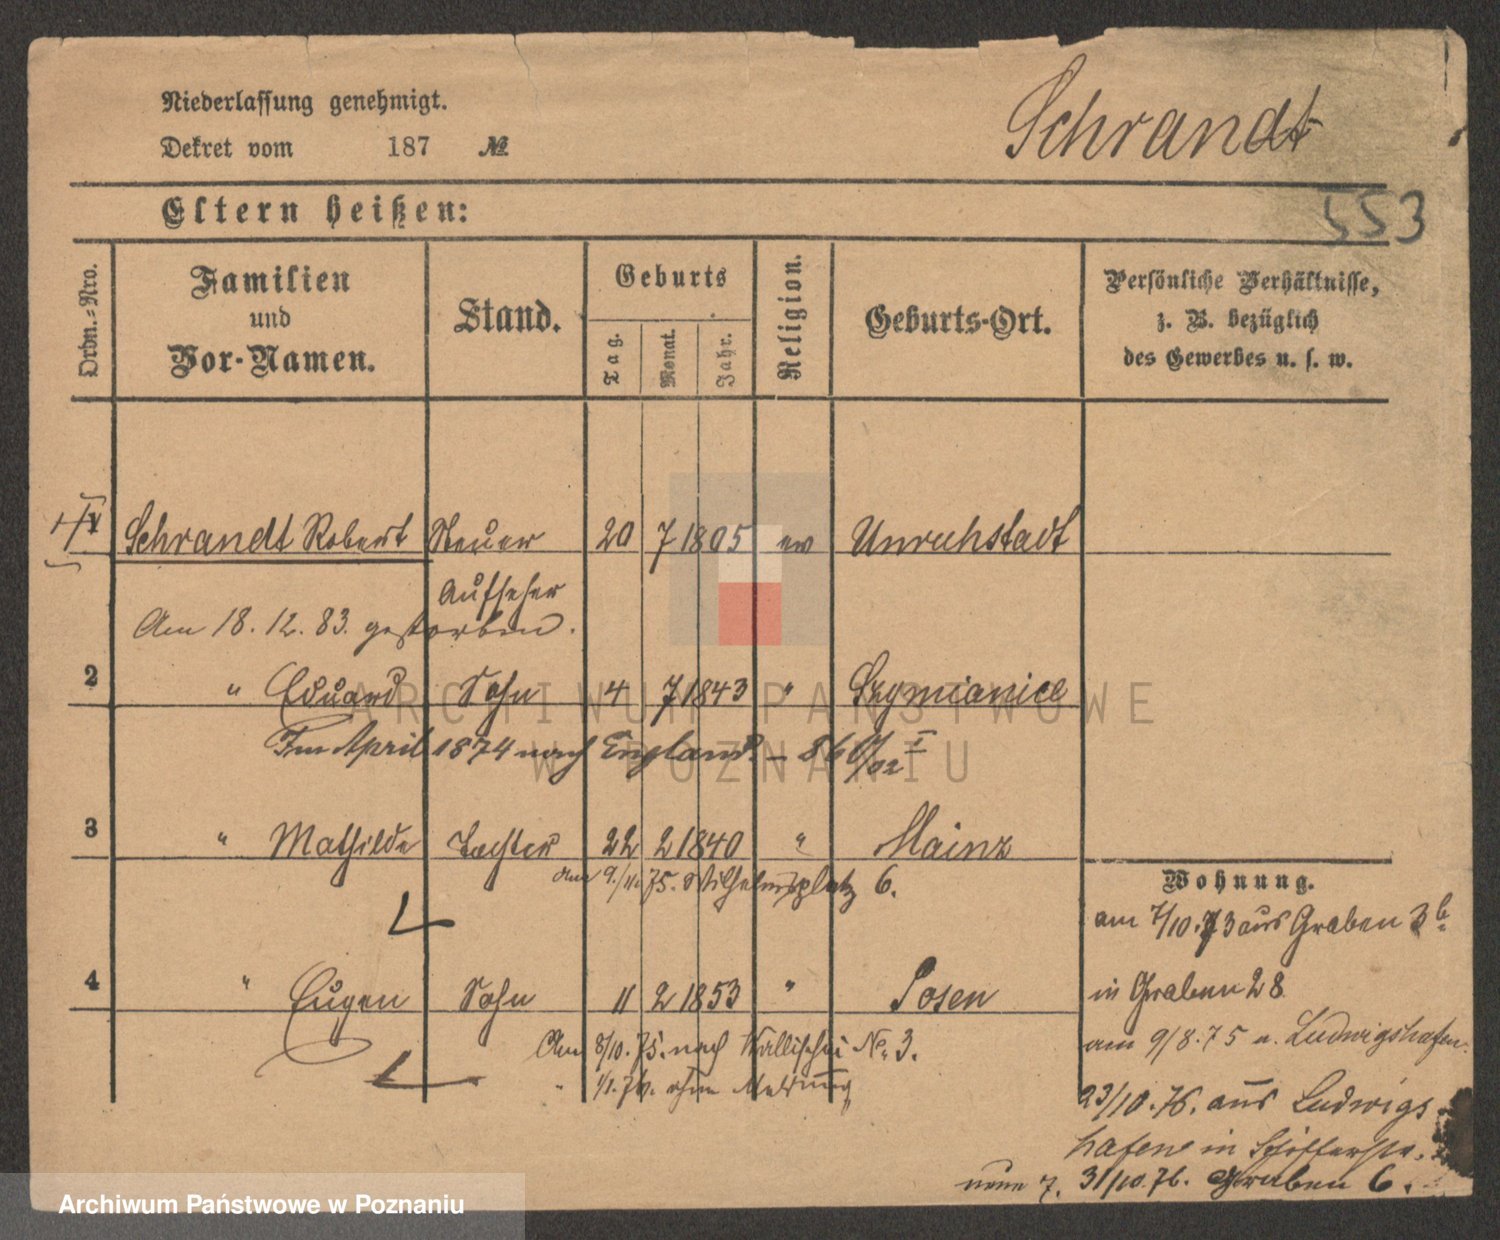 Niederlassung genehmigt.
Dekret vom 187 №
Schrandt
553
Eltern heißen:
Ordn.-Nro.
Familien
und
Vor-Namen.
Stand.
Geburts
Tag.
Monat.
Jahr.
Religion.
Geburts-Ort.
Persönliche Verhältnisse,
z. B. bezüglich
des Gewerbes u. s. w.
1 Schrandt Robert Steuer 20 7 1805 ev Unruhstadt
Aufseher
Am 18. 12. 83. gestorben.
2 " Eduard Sohn 4 7 1843 "
Im April 1874 nach England.
3 " Mathilde Tochter 22 2 1840 " Mainz
am 9/11. 75. Wilhelmsplatz 6.
4 " Eugen Sohn 11 2 1853 " Posen
Am 8/10. 75. nach Wallischei No. 3.
" 1/1. 76. ohne Meldung
Wohnung.
am 7/10. 73 aus Graben 3b.
in Graben 28
am 9/8. 75 Ludwigshafen.
23/10. 76. aus Ludwigs
hafen in
31/10. 76. Graben 6.
ARCHIWUM PAŃSTWOWE
W POZNANIU
Archiwum Państwowe w Poznaniu